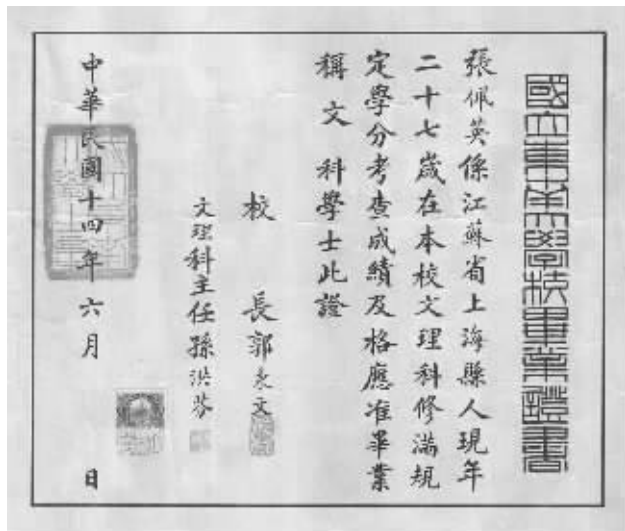 國立東南大學校畢業證書
張佩英係江蘇省上海縣人現年
二十七歲在本校文理科修滿規
定學分考查成績及格應准畢業
稱文 科學士此證
校 長郭
文理科主任孫洪芬
中華民國十四年六月 日